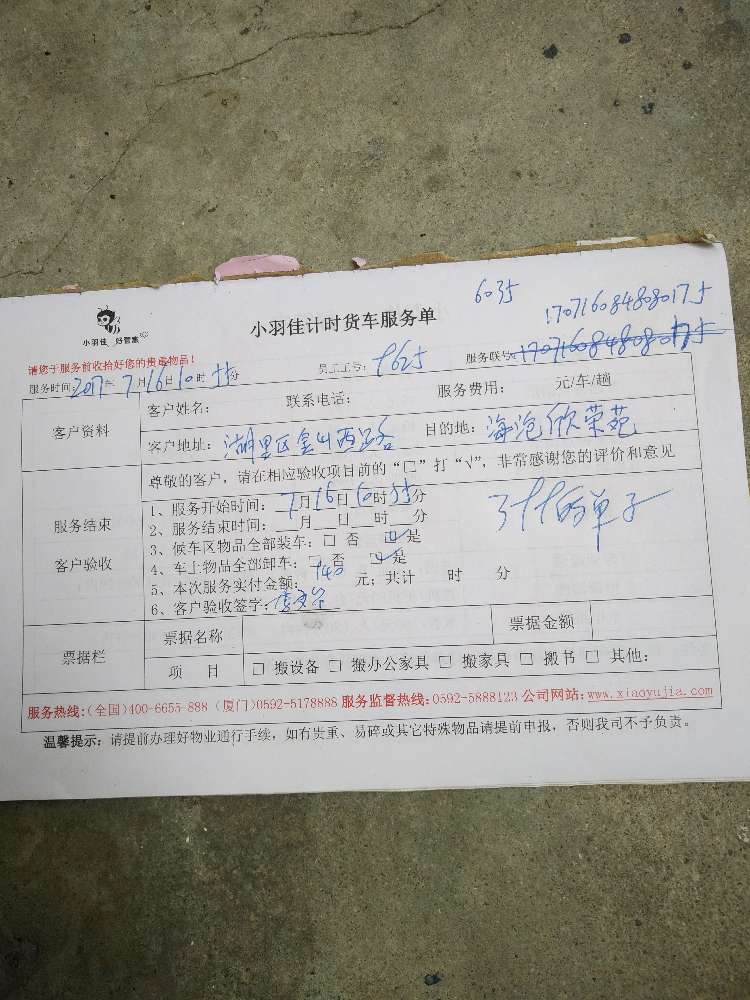 6035
1707160848080175
小羽佳 好管家
小羽佳计时货车服务单
请您于服务前收拾好您的贵重物品！
服务时间：2017年7月16日10时55分 员工工号：9625 服务联号：
客户资料
客户姓名： 联系电话： 服务费用： 元/车/趟
客户地址：湖里区金山西路 目的地：海沧欣荣苑
服务结束
客户验收
尊敬的客户，请在相应验收项目前的“□”打“√”，非常感谢您的评价和意见
1、服务开始时间：7月16日10时55分
2、服务结束时间：__月__日__时__分
3、候车区物品全部装车：□ 否 ☑ 是
4、车上物品全部卸车：□ 否 ☑ 是
5、本次服务实付金额： 元；共计 时 分
6、客户验收签字：
的单子
票据栏
票据名称 票据金额
项 目 □ 搬设备 □ 搬办公家具 □ 搬家具 □ 搬书 □ 其他：
服务热线：(全国)400-6655-888 (厦门)0592-5178888 服务监督热线：0592-5888123 公司网站：www.xiaoyujia.com
温馨提示：请提前办理好物业通行手续，如有贵重、易碎或其它特殊物品请提前申报，否则我司不予负责。